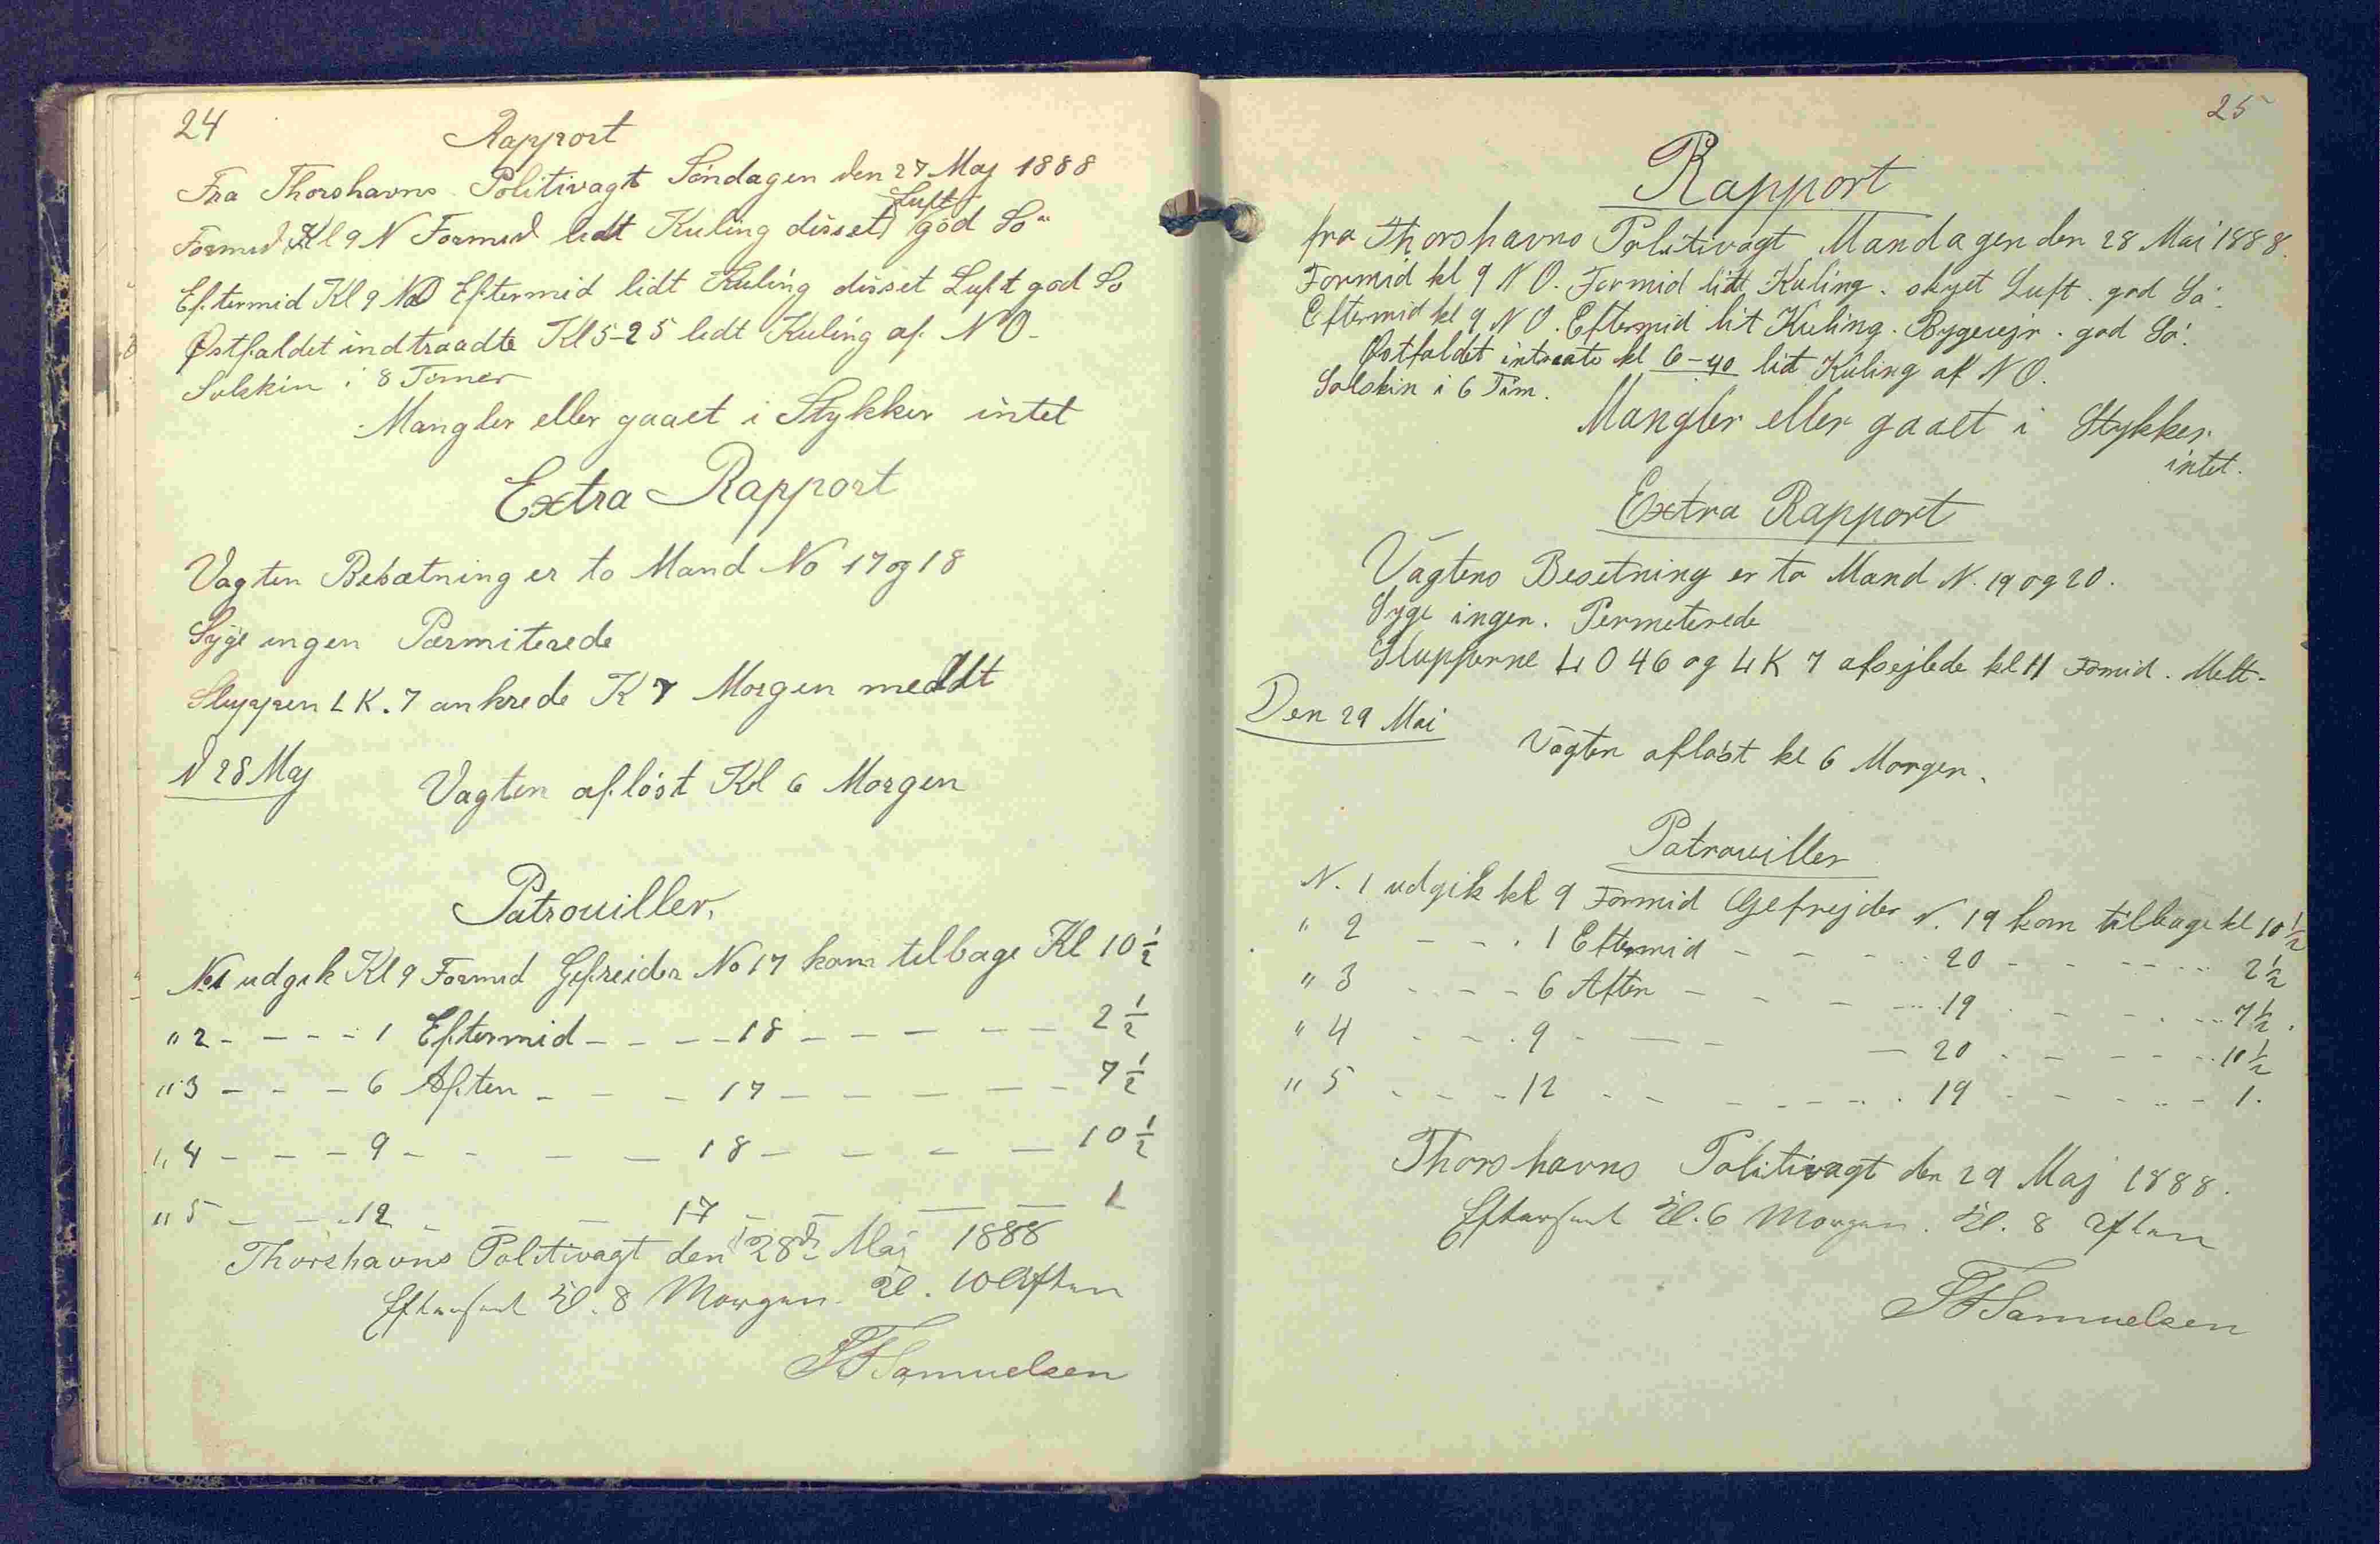 24
Rapport
Fra Thorshavns Politivagt Søndagen den 27 Maj 1888
Luft
Formid Kl 9 N Formid lidt Kuling disset god Sö
Eftermid Kl 9 NO Eftermid lidt Kuling disset Luft god So
Østfaldet indtraadte Kl 5-25 lidt Kuling af NO-
Solskin i 8 Timer
Mangler eller gaaet i Stykker intet
Extra Rapport
Vagten Besætning er to Mand No 17 og 18
Syge ingen Pærmiterede
Sluppen LK.7 ankrede K 7 Morgen meddt
d 28 Maj
Vagten aflöst Kl 6 Morgen
Patrouiller.
No1 udgik Kl 9 Formid Gefreider No 17 kom tilbage Kl 10 1/2
" 2 - - - - 1 Eftermid - - - - 18 - - - - - 2 1/2
" 3 - - - 6 Aften - - - 17 - - - - - 7 1/2
" 4 - - - 9 - - - - 18 - - - - 10 1/2
" 5 - - - 12 - - - 17 - - - - 1
Thorshavns Politivagt den 28de Maj 1888
Efterset Kl. 8 Morgen. Kl. 10 Aften
SFSamuelsen
25
Rapport
fra Thorshavns Politivagt Mandagen den 28 Mai 1888.
Formid kl 9 N O. Formid lidt Kuling. skyet Luft. god Sö.
Eftermid kl 9 N O. Eftermid lit Kuling. Bygevejr. god Sö.
Østfaldet intraate kl 6-40 lidt Kuling af N O.
Solskin i 6 Tim.
Mangler eller gaaet i Stykker
intet.
Extra Rapport
Vagtens Besetning er to Mand N. 19 og 20.
Syge ingen. Permeterede
Slupperne LO 46 og LK 7 afsejlede kl 11 Fomid. Melt-
Den 29 Mai
Vagten aflöst kl 6 Morgen.
Patrouiller
N. 1 udgik kl 9 Formid Gefrejder N. 19 kom tilbage kl 10 1/2
" 2 - - - 1 Eftermid - - - - 20 - - - - - 2 1/2
" 3 - - - - 6 Aften - - - - 19 - - - - - 7 1/2.
" 4 - - - 9 - - - - 20 - - - - - 10 1/2
" 5 - - - - 12 - - - - - 19 - - - - - 1.
Thorshavns Politivagt den 29 Maj 1888.
Efterset Kl. 6 Morgen. Kl. 8 Aften
SFSamuelsen